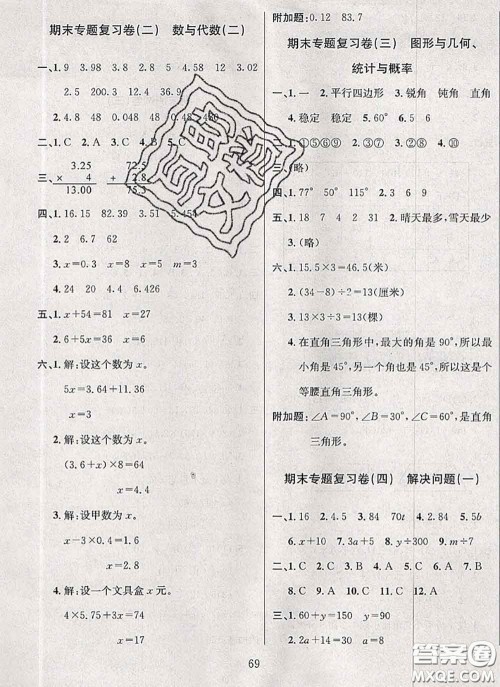 期末专题复习卷(二)　数与代数(二)
一、1. 9　3.98　3.8　2　10
2.5　200　9.3
2. 0.48　4.8　0.048　480
二、1. C　2. A　3. C
三、3.25　72.5
×　4　+　2.8
13.00　75.3
四、1. 16.15　82.39　3.8
2. 2　6.7　62
3. x=0.8　x=8　x=5　m=3
4. 24　20　4.4　9.6
五、1. x+54=81　x=27
2. 6+5x=36　x=6
六、1. 解:设这个数为x。
5x=3.64+11.36
x=3
2. 解:设这个数为x。
(3.6+x)×8=64
x=4.4
3. 解:设甲数为x。
x-3×0.4=0.3
x=1.5
4. 解:设一个文具盒x元。
4×5.75+3x=74
x=17
附加题:0.12　83.7
期末专题复习卷(三)　图形与几何、
统计与概率
一、1. =　2. 平行四边形　3. 锐角　钝角　直角
4. 稳定　稳定　5. 60°
二、1. ①⑤⑥⑨　2. ②③⑦　3. ④⑧　4. ⑩
三、(略)
四、1. 77°　50°　115°　2. 3　6　9
五、1. 18　7　4　2　31　2. 晴天最多,雪天最少
3. (略)
六、1. 15.5×3=46.5(米)
2. (34-8)÷2=13(厘米)
3. 13×3÷3=13(棵)
4. 在直角三角形中,最大的角是90°,所以最
小的角也是45°。另一个角也是45°,所以这个是
等腰直角三角形。
附加题:∠A=90°,∠B=30°,∠C=60°,是直角
三角形。
期末专题复习卷(四)　解决问题(一)
一、1. 16　2. 4.5　3. 84　70t　4. 2.84　5. 5b
6. x+30=150　7. 6a　8. y÷300　9. m÷7
二、10. B　11. C　12. A
三、1. 60+y=150　y=90
2. 2a+14=30　a=8
69
答案圈
MXQE.COM